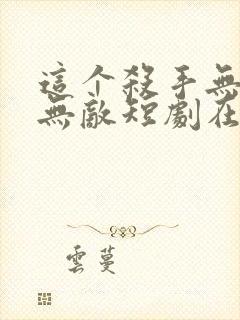 這个殺手無
無敵短劇在
雲蔓